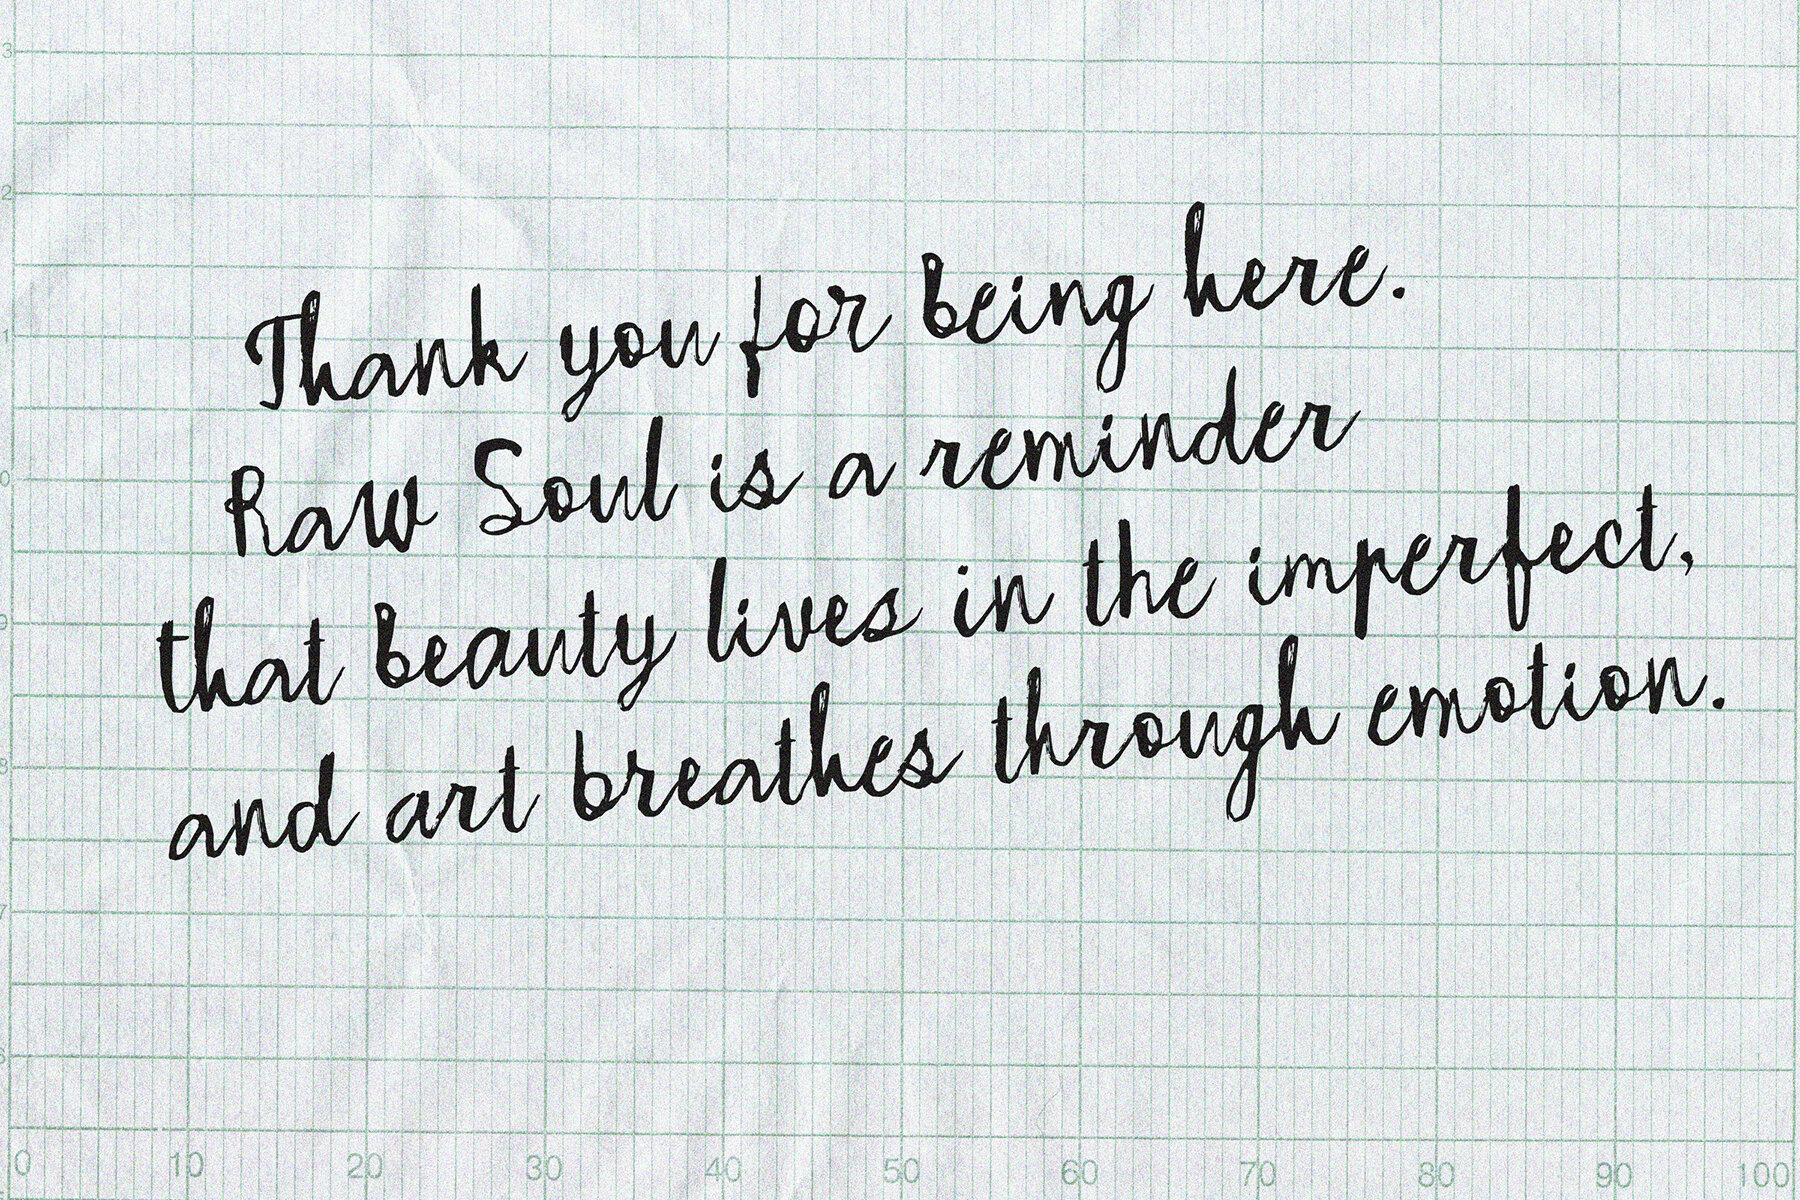 Thank you for being here.
Raw Soul is a reminder
that beauty lives in the imperfect,
and art breathes through emotion.
3
2
1
0
9
8
7
6
0 10 20 30 40 50 60 70 80 90 100